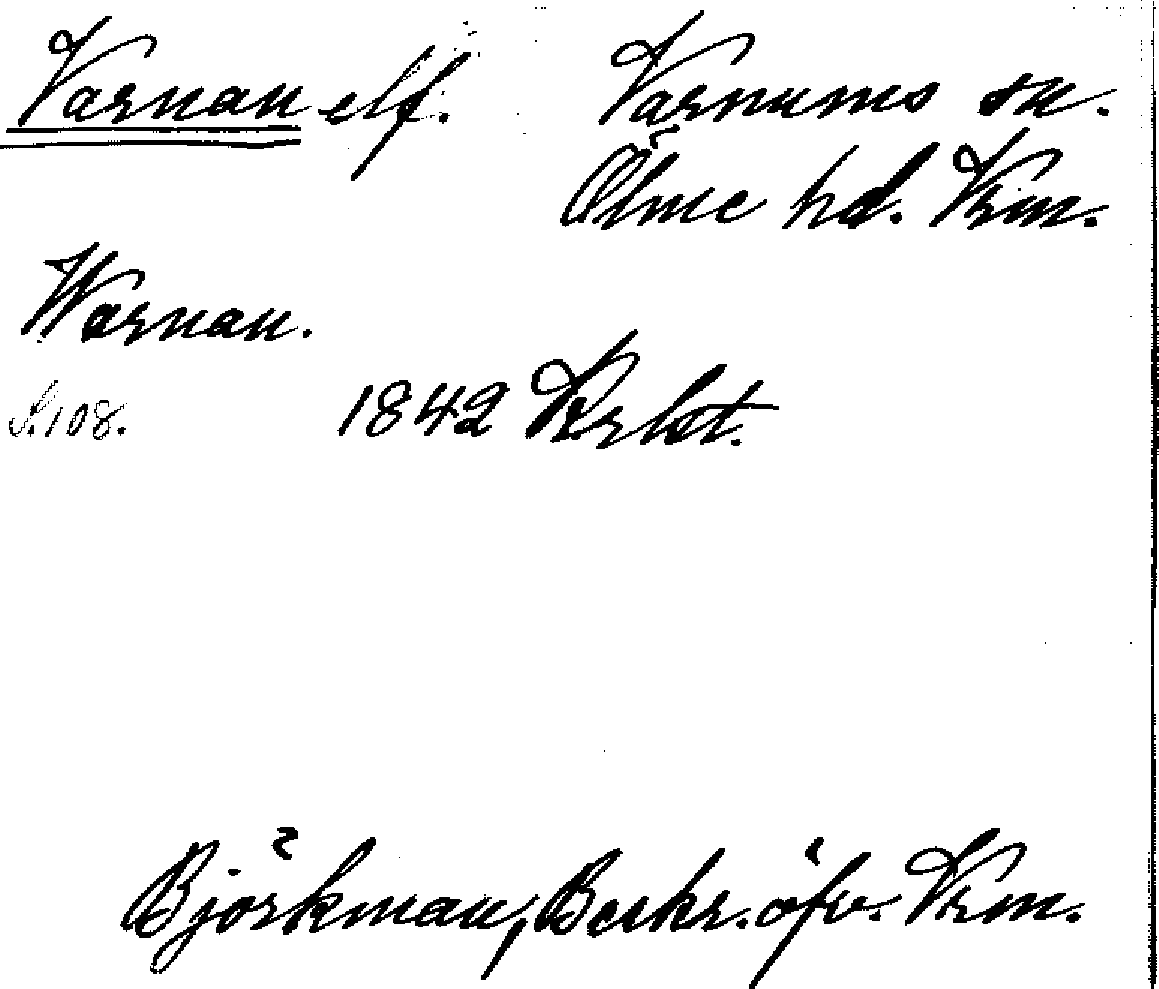 Varnan elf. Varnums sn.
Ölme hd. Vrm.
Warnan.
S. 108. 1842 Krlst.
Björkman, Beskr. öfv. Vrm.